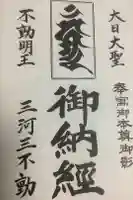 大日大聖
奉寫御本尊御影
御納經
不動明王
三河三不動